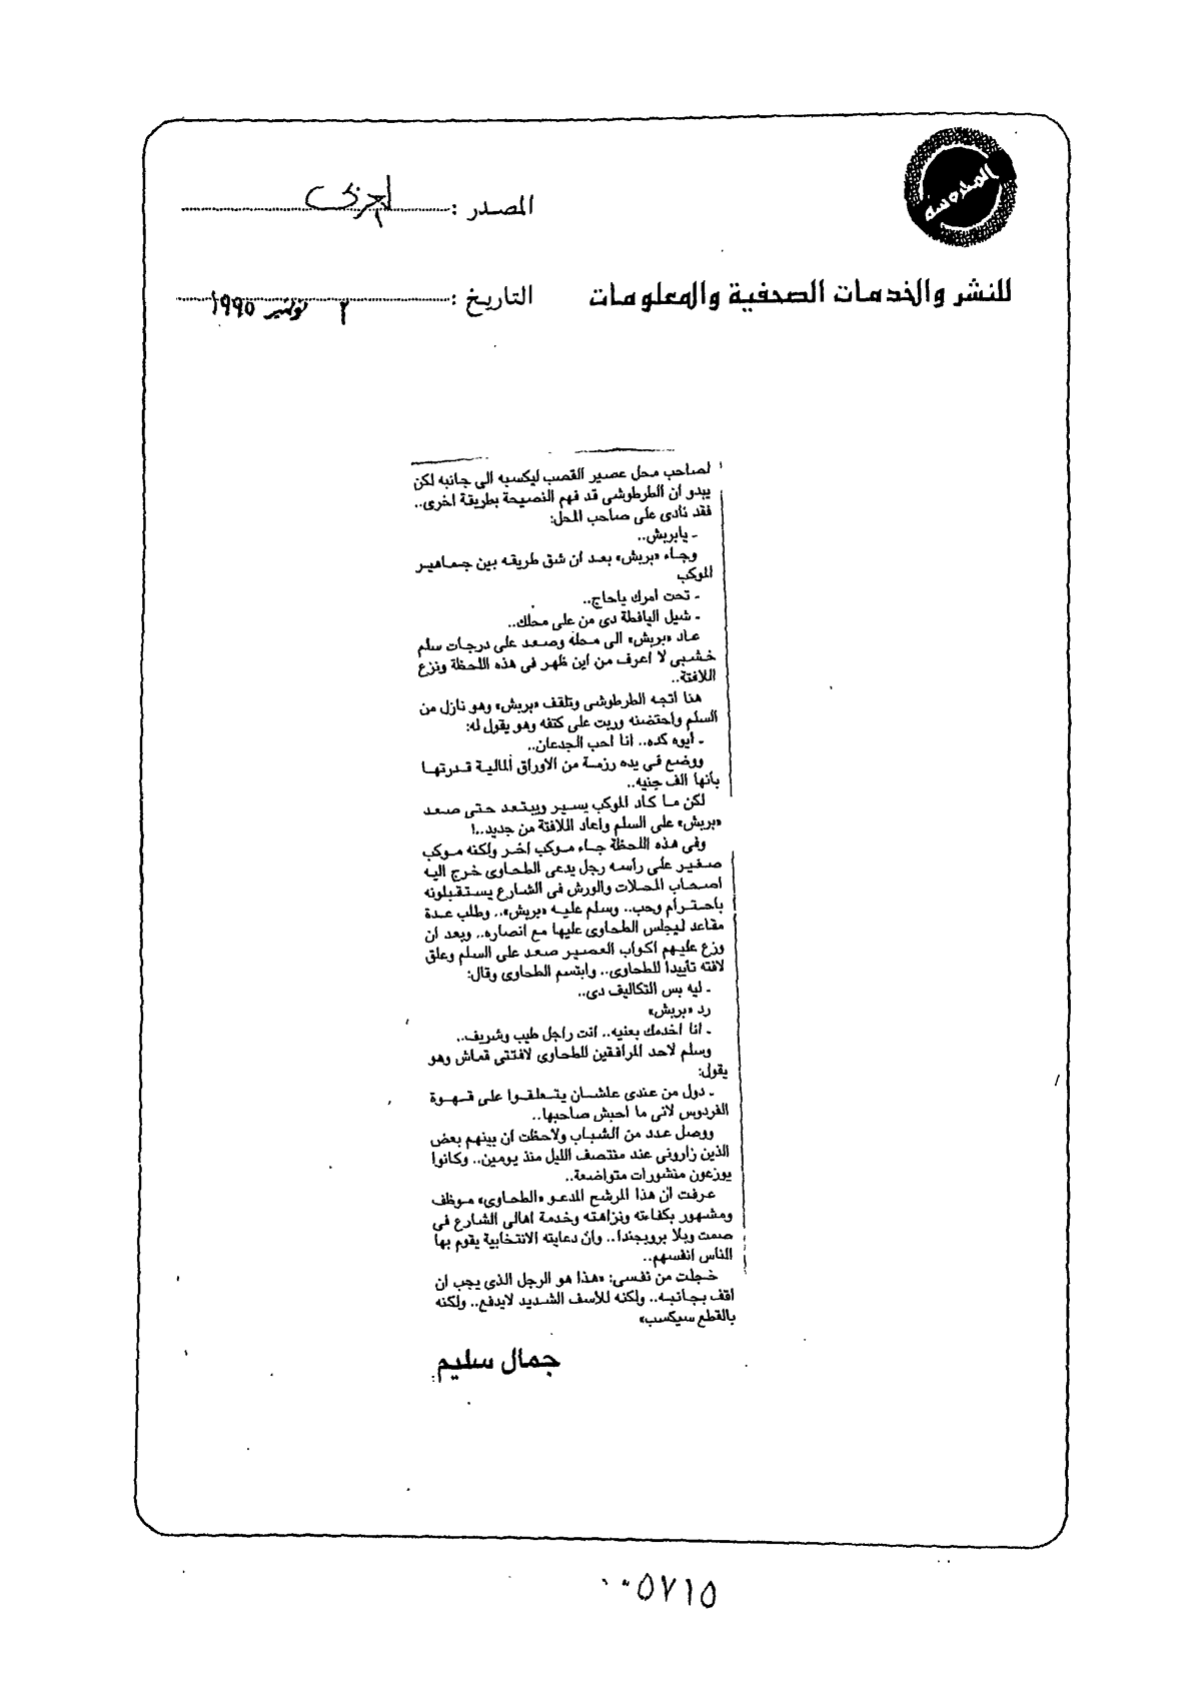 المحروسة
المصدر :
للنشر والخدمات الصحفية والمعلومات
التاريخ : ٢ نوفمبر ١٩٩٥
لصاحب محل عصير القصب ليكسبه الى جانبه لكن
يبدو ان الطرطوشى قد فهم النصيحة بطريقة اخرى..
فقد نادى على صاحب المحل:
ـ يابربش..
وجاء «بربش» بعد ان شق طريقه بين جماهير
الموكب
ـ تحت امرك ياحاج..
ـ شيل اليافطة دى من على محلك..
عاد «بربش» الى محله وصعد على درجات سلم
خشبى لا اعرف من اين ظهر فى هذه اللحظة ونزع
اللافتة..
هنا اتجه الطرطوشى وتلقف «بربش» وهو نازل من
السلم واحتضنه وربت على كتفه وهو يقول له:
ـ أيوه كده.. انا احب الجدعان..
ووضع فى يده رزمة من الاوراق المالية قدرتها
بأنها الف جنيه..
لكن ما كاد الموكب يسير ويبتعد حتى صعد
«بربش» على السلم واعاد اللافتة من جديد..!
وفى هذه اللحظة جاء موكب آخر ولكنه موكب
صغير على رأسه رجل يدعى الطحاوى خرج اليه
اصحاب المحلات والورش فى الشارع يستقبلونه
باحترام وحب.. وسلم عليه «بربش».. وطلب عدة
مقاعد ليجلس الطحاوى عليها مع انصاره.. وبعد ان
وزع عليهم اكواب العصير صعد على السلم وعلق
لافته تأييدا للطحاوى.. وابتسم الطحاوى وقال:
ـ ليه بس التكاليف دى..
رد «بربش»
ـ انا اخدمك بعنيه.. انت راجل طيب وشريف..
وسلم لاحد المرافقين للطحاوى لافتتى قماش وهو
يقول:
ـ دول من عندى علشان يتعلقوا على قهوة
الفردوس لانى ما احبش صاحبها..
ووصل عدد من الشباب ولاحظت ان بينهم بعض
الذين زارونى عند منتصف الليل منذ يومين.. وكانوا
يوزعون منشورات متواضعة..
عرفت ان هذا المرشح المدعو «الطحاوى» موظف
ومشهور بكفاءته ونزاهته وخدمة اهالى الشارع فى
صمت وبلا بروبجندا.. وان دعايته الانتخابية يقوم بها
الناس انفسهم..
خجلت من نفسى: «هذا هو الرجل الذى يجب ان
اقف بجانبه.. ولكنه للأسف الشديد لايدفع.. ولكنه
بالقطع سيكسب»
جمال سليم
٠٠٥٧١٥